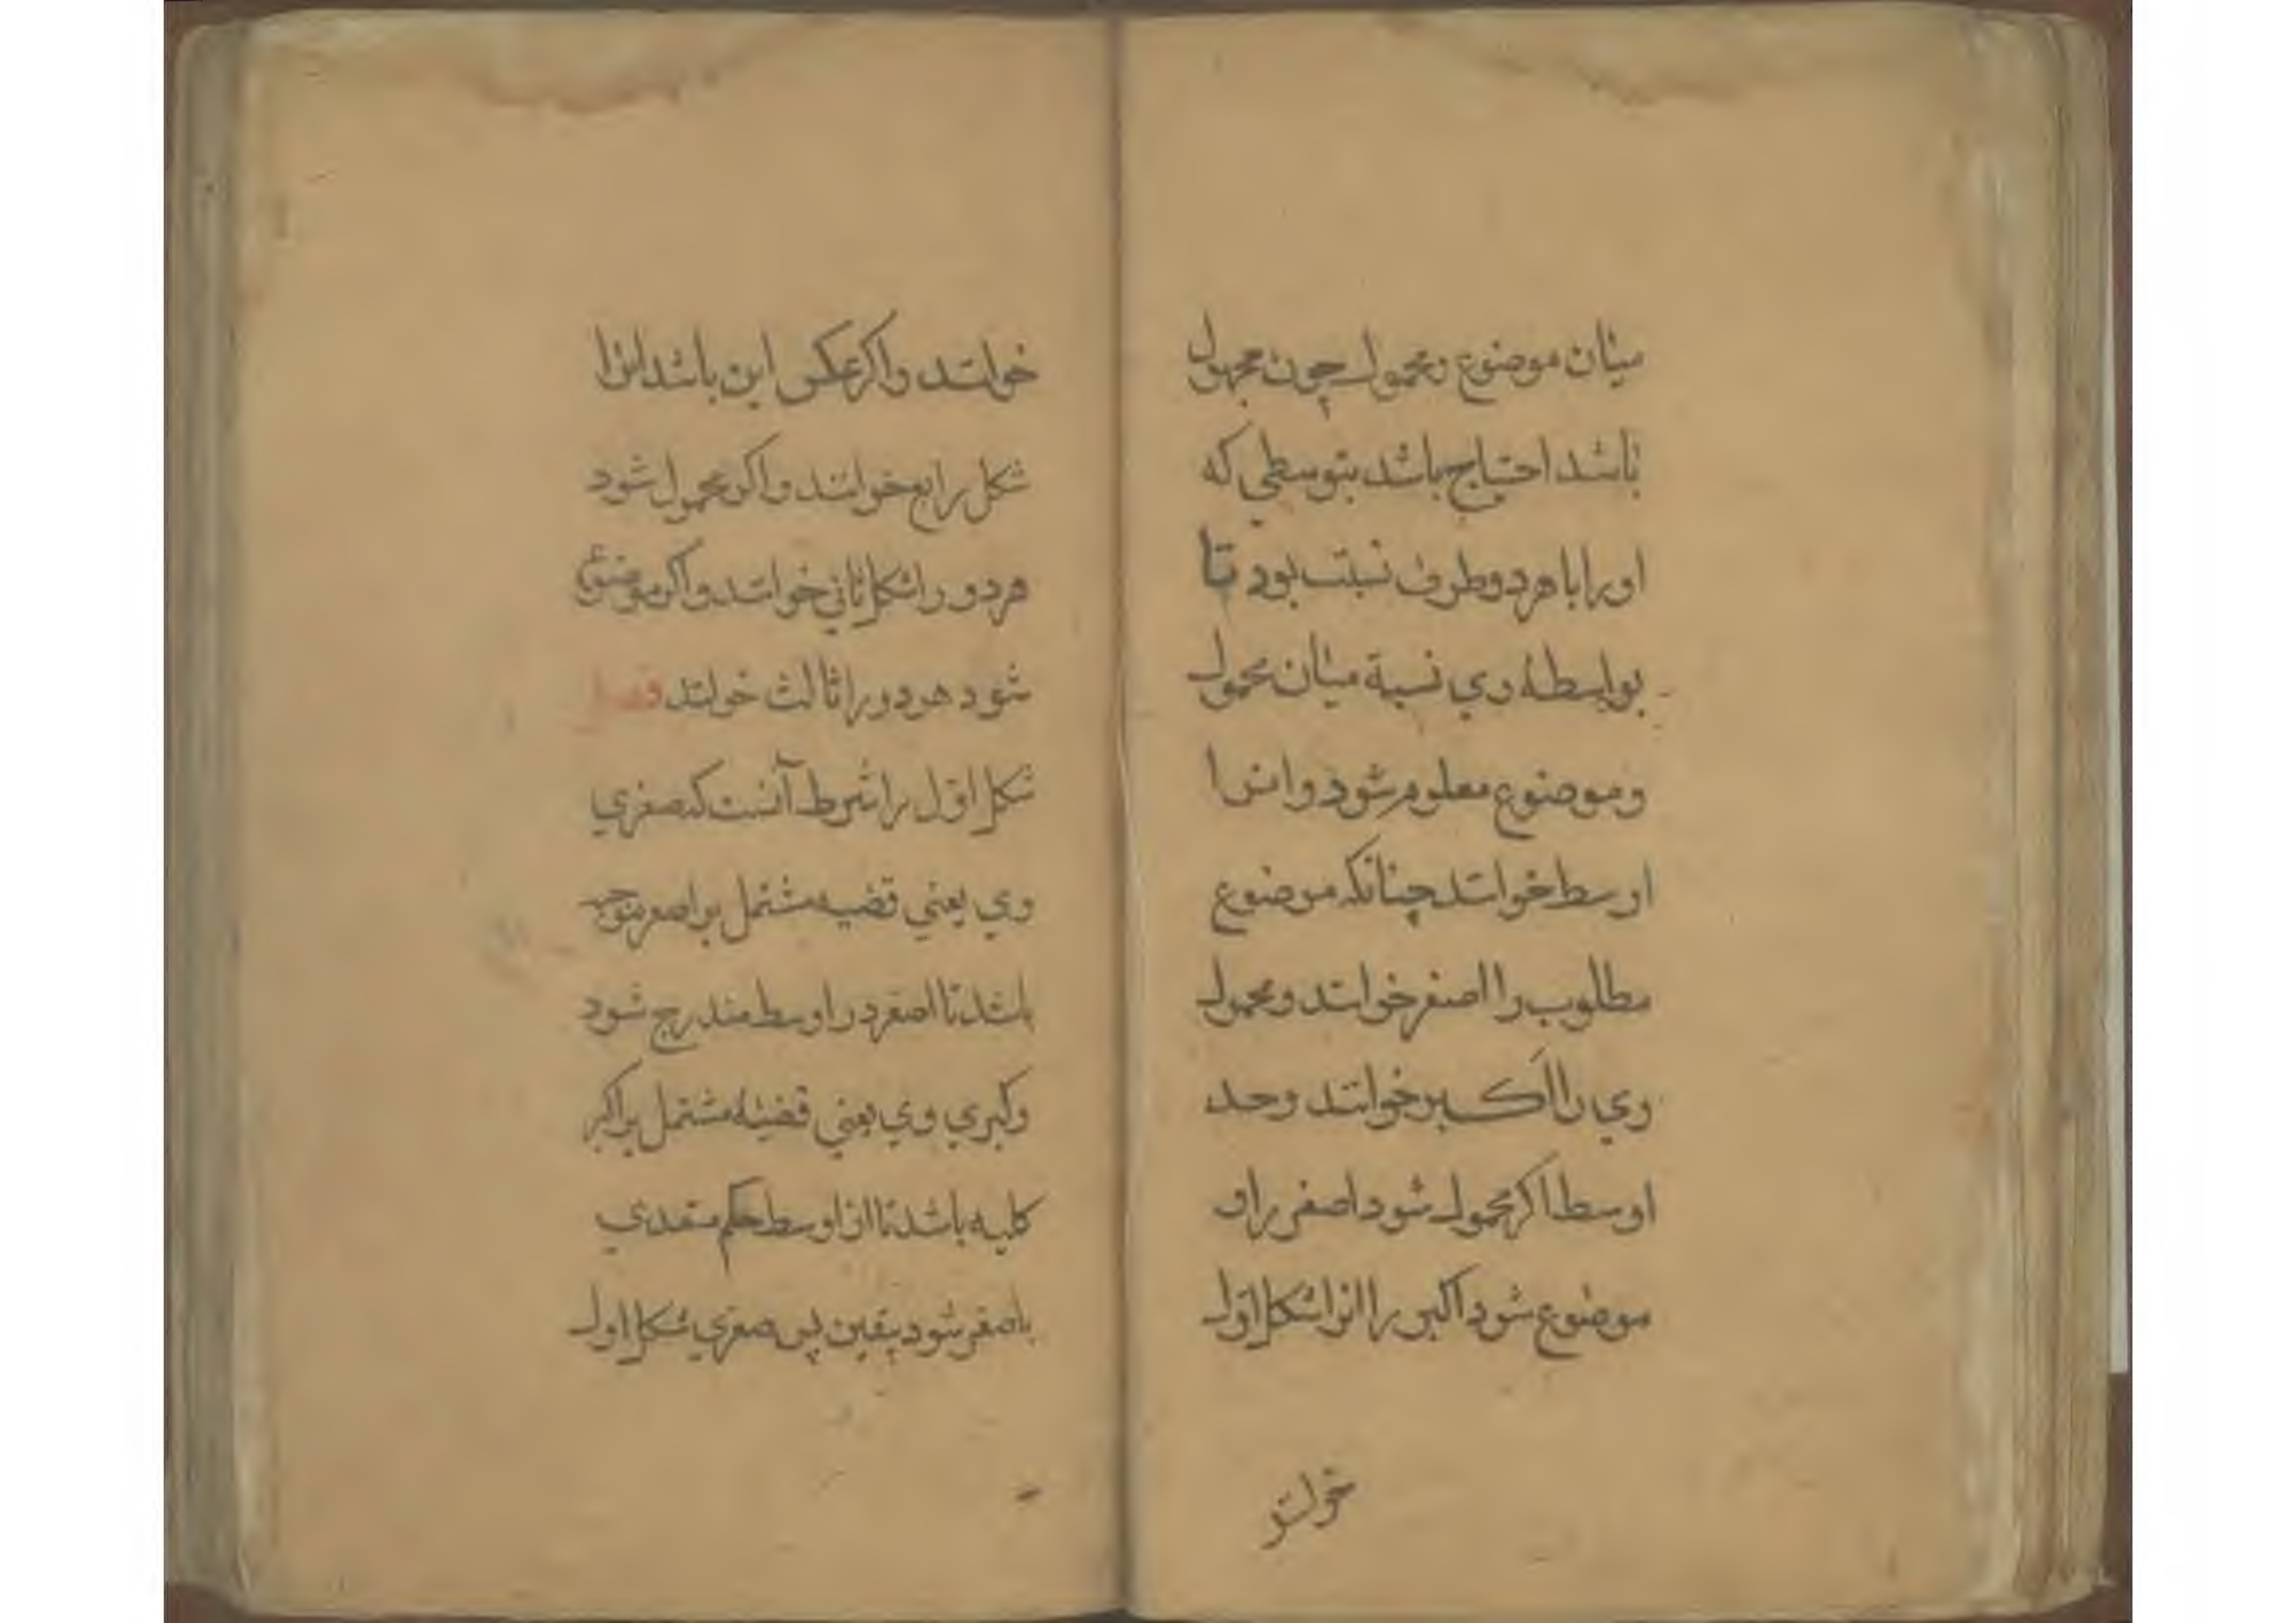 میان موضوع ومحمول چون مجهول
باشد احتیاج باشد بتوسطی که
اورا با هر دو طرف نسبت بود تا
بواسطهٔ وی نسبة میان محمول
وموضوع معلوم شود وانرا
اوسط خوانند چنانکه موضوع
مطلوب را اصغر خوانند ومحمول
وی را اکبر خوانند وحد
اوسط اکر محمول شود اصغر را و
موضوع شود اکبر را انرا شکل اول
خوانند
خوانند واکر عکس این باشد انرا
شکل رابع خوانند واکر محمول شود
هر دو را شکل ثانی خوانند واکر موضوع
شود هر دو را ثالث خوانند فصل
شکل اول را شرط آنست که صغری
وی یعنی قضیه مشتمل بر اصغر موجبه
باشد تا اصغر در اوسط مندرج شود
وکبری وی یعنی قضیهٔ مشتمل بر اکبر
کلیه باشد تا از اوسط حکم متعدی
باصغر شود بیقین پس صغری شکل اول